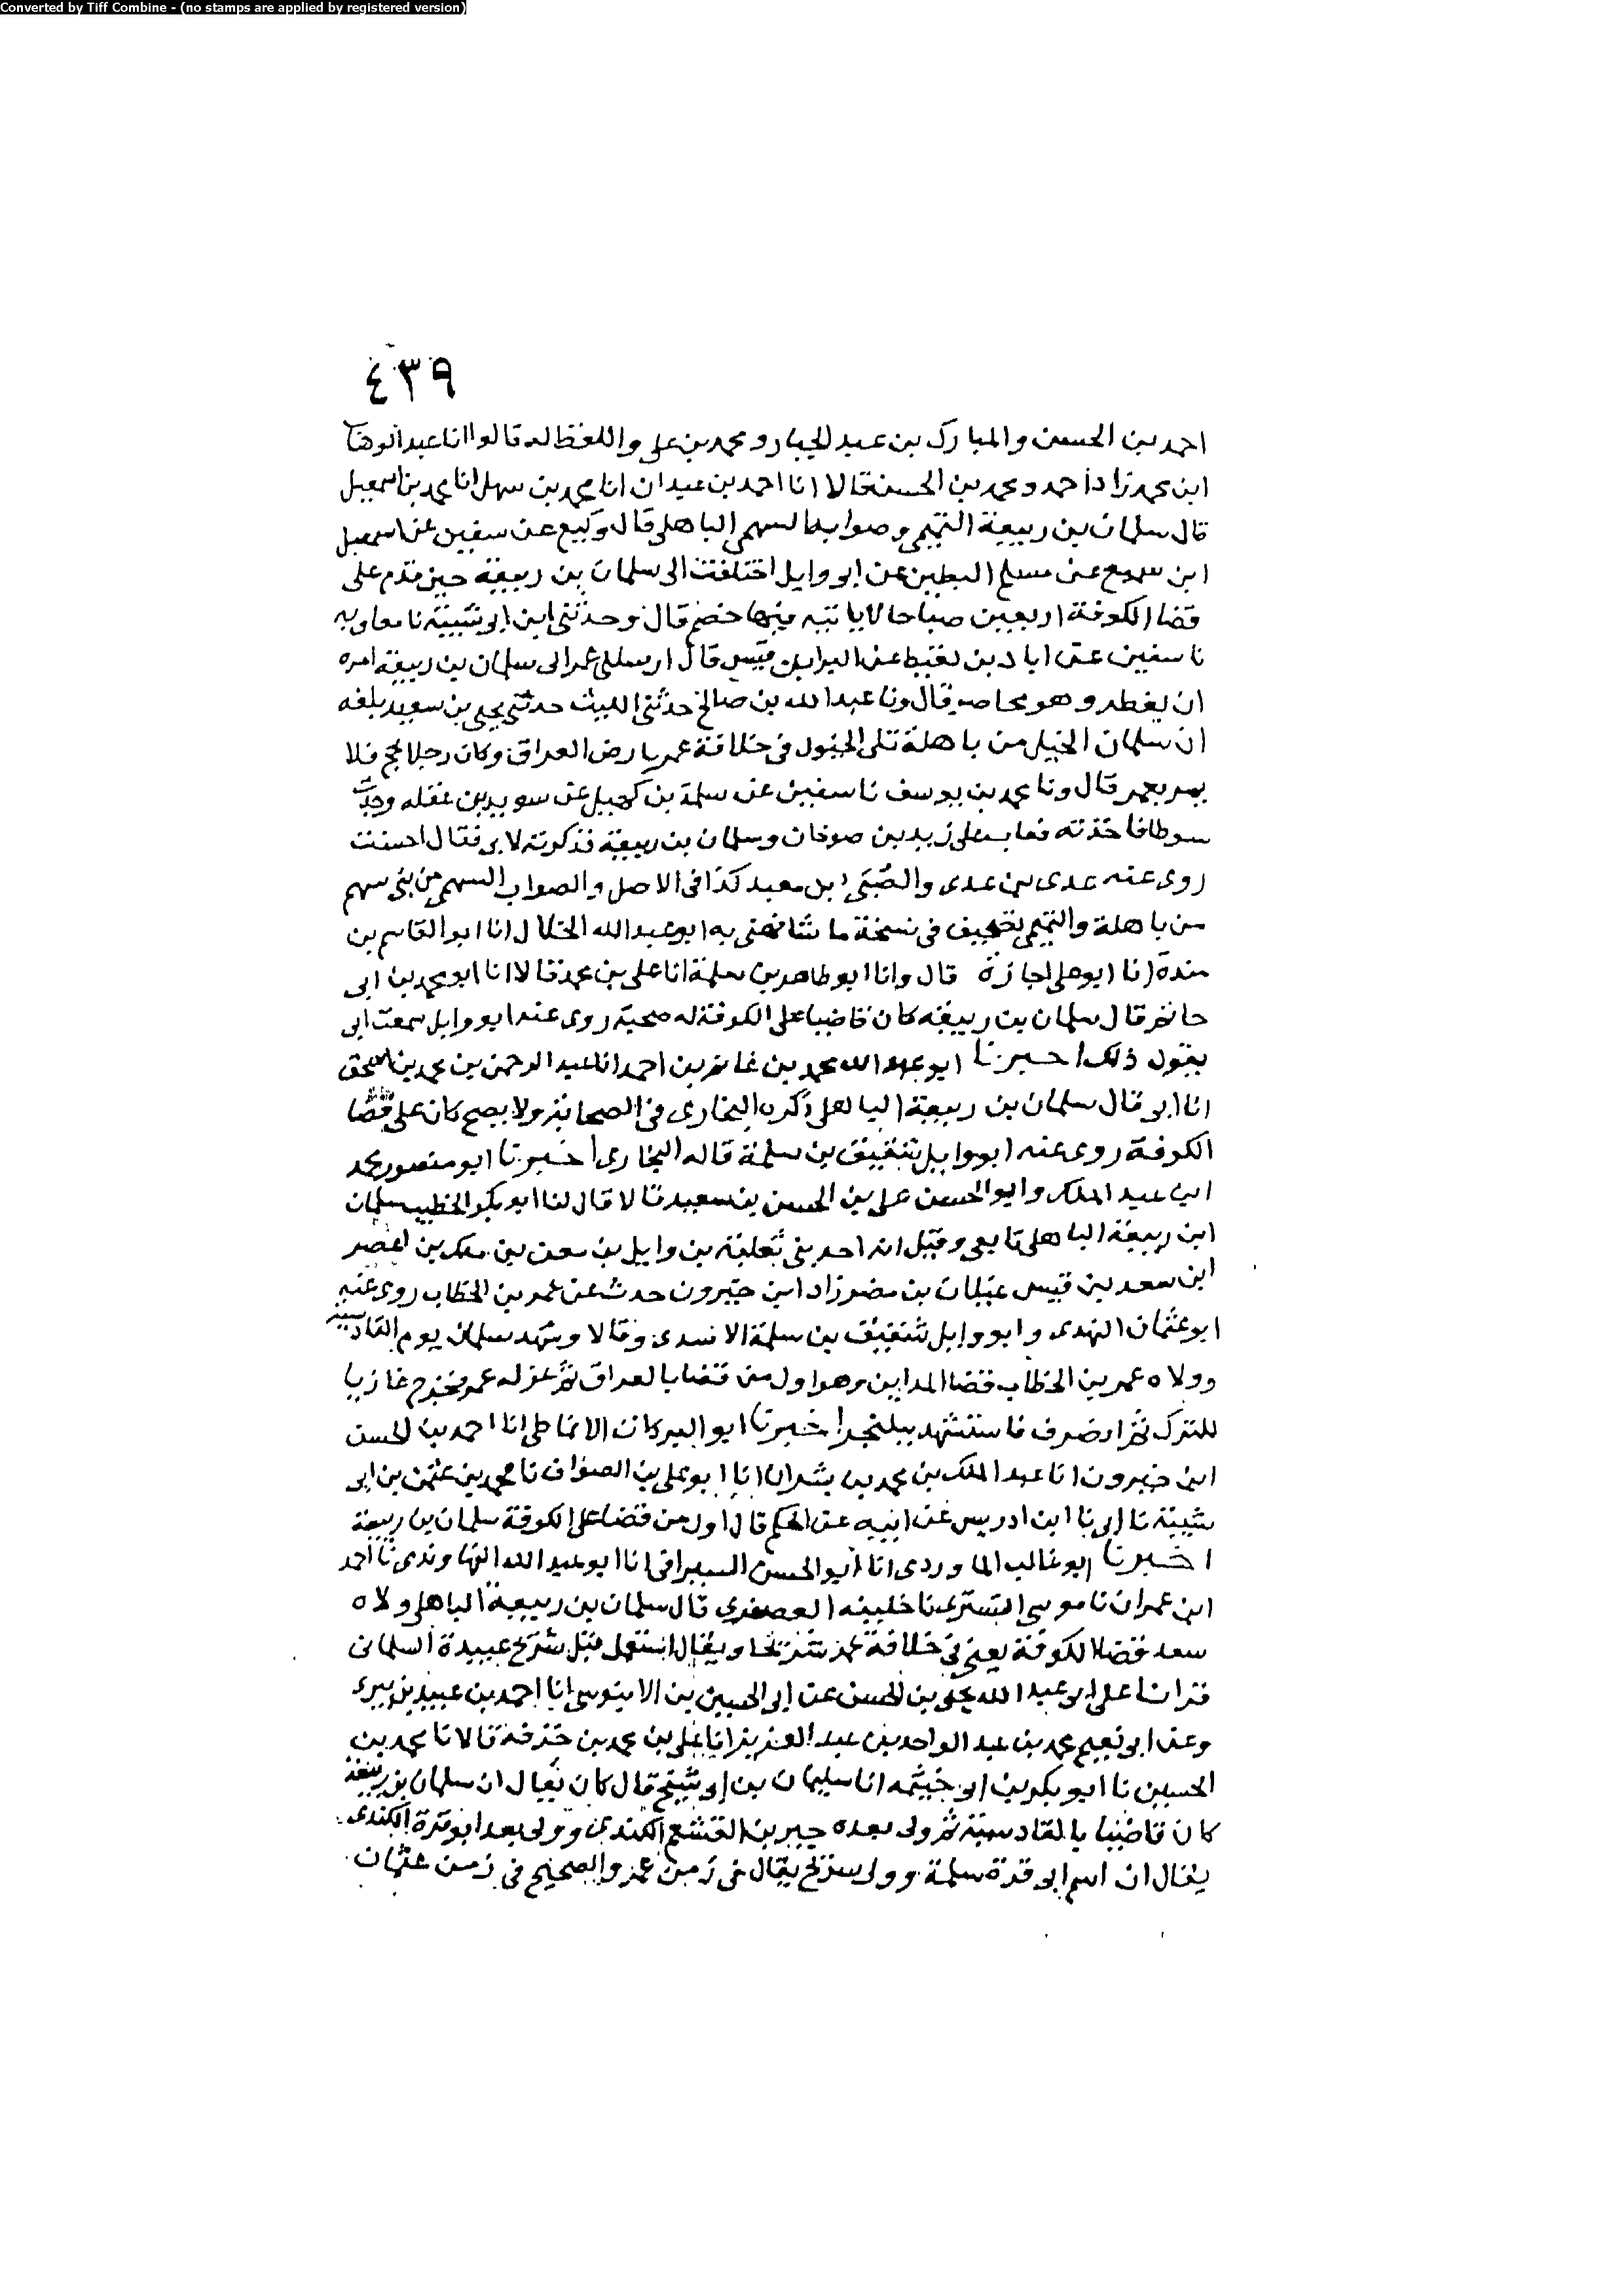 Converted by Tiff Combine - (no stamps are applied by registered version)
٤٣٩
احمد بن الحسن والمبارك بن عبد الجبار ومحمد بن على واللفظ له قالوا انا عبد الوهاب
ابن محمد زاد احمد ومحمد بن الحسن قالا انا احمد بن عبدان انا محمد بن سهل انا محمد بن اسمعيل
قال سلمان بن ربيعة التميمى وصوابه السهمى الباهلى قال وكيع عن سفين عن اسمعيل
ابن سميع عن مسلم البطين عن ابى وايل اختلفت الى سلمان بن ربيعة حين قدم على
قضا الكوفة اربعين صباحا لا ياتيه فيها خصم قال وحدثنى ابن ابى شيبة نا معاويه
نا سفين عن اياد بن لقيط عن البرا بن قيس قال ارسلنى عمر الى سلمان بن ربيعة امره
ان يفطر وهو محاصر قال ونا عبد الله بن صالح حدثنى الليث حدثنى يحيى بن سعيد بلغه
ان سلمان الخيل من باهلة تلى الخيول فى خلافة عمر بارض العراق وكان رجلا يحج فلا
يمر بعمر قال ونا محمد بن يوسف نا سفين عن سلمة بن كهيل عن سويد بن غفله وجدت
سوطا فاخذته فعاب على زيد بن صوخان وسلمان بن ربيعة فذكرته لابى فقال احسنت
روى عنه عدى بن عدى والصبى بن معبد كذا فى الاصل والصواب السهمى من بنى سهم
من باهلة والتميمى تصحيف فى نسخة ما شافهنى به ابو عبد الله الخلال انا ابو القاسم بن
مندة انا ابو على اجازة قال وانا ابو طاهر بن سلمة انا على بن محمد قالا انا ابو محمد بن ابى
حاتم قال سلمان بن ربيعة كان قاضيا على الكوفة له صحبة روى عنه ابو وايل سمعت ابى
يقول ذلك اخبرنا ابو عبد الله محمد بن غانم بن احمد انا عبد الرحمن بن محمد بن اسحق
انا ابى قال سلمان بن ربيعة الباهلى ذكره البخارى فى الصحابة ولا يصح كان على قضا
الكوفة روى عنه ابو وايل شقيق بن سلمة قاله البخارى اخبرنا ابو منصور محمد
ابن عبد الملك وابو الحسن على بن الحسن بن سعيد قالا قال لنا ابو بكر الخطيب سلمان
ابن ربيعة الباهلى تابعى وقيل انه احد بنى ثعلبة بن وايل بن معن بن ملك بن اعصر
ابن سعد بن قيس عيلان بن مضر زاد ابن خيرون حدث عن عمر بن الخطاب روى عنه
ابو عثمان النهدى وابو وايل شقيق بن سلمة الاسدى وقالا وشهد سلمان يوم القادسية
وولاه عمر بن الخطاب قضا المداين وهو اول من قضا بالعراق ثم عزله عمر فخرج غازيا
للترك ثم انصرف فاستشهد ببلنجر اخبرنا ابو البركات الانماطى انا احمد بن الحسن
ابن خيرون انا عبد الملك بن محمد بن بشران انا ابو على بن الصواف نا محمد بن عثمن بن ابى
شيبة نا ابى نا ابن ادريس عن ابيه عن الحكم قال اول من قضا على الكوفة سلمان بن ربيعة
اخبرنا ابو غالب الماوردى انا ابو الحسن السيرافى انا ابو عبد الله النهاوندى نا احمد
ابن عمران نا موسى التسترى نا خليفه العصفرى قال سلمان بن ربيعة الباهلى ولاه
سعد قضا الكوفة يعنى فى خلافة عمر شريحا ويقال استعمل قبل شريح عبيدة السلمانى
قرانا على ابى عبد الله يحيى بن الحسن عن ابى الحسين بن الابنوسى انا احمد بن عبيد بن بيرى
وعن ابى نعيم محمد بن عبد الواحد بن عبد العزيز انا على بن محمد بن خزفة قالا نا محمد بن
الحسين نا ابو بكر بن ابى خيثمه انا سليمان بن ابى شيخ قال كان يقال ان سلمان بن ربيعة
كان قاضيا بالقادسية ثم ولى بعده جبر بن القشعم الكندى وولى بعد ابو قرة الكندى
يقال ان اسم ابى قرة سلمة وولى شريح يقال فى زمن عمر والصحيح فى زمن عثمان